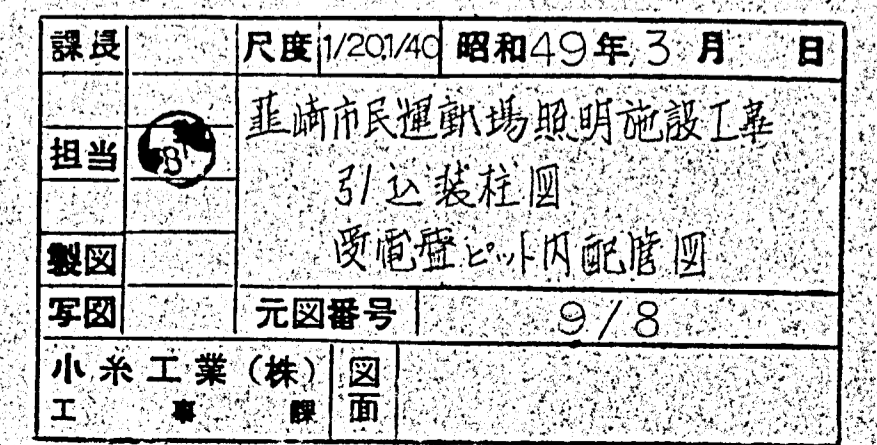 課長
尺度 1/20,1/40 昭和49年3月 日
担当
韮崎市民運動場照明施設工事
引込装柱図
受電盤ピット内配管図
製図
写図
元図番号 9/8
小糸工業(株)
工事課
図面